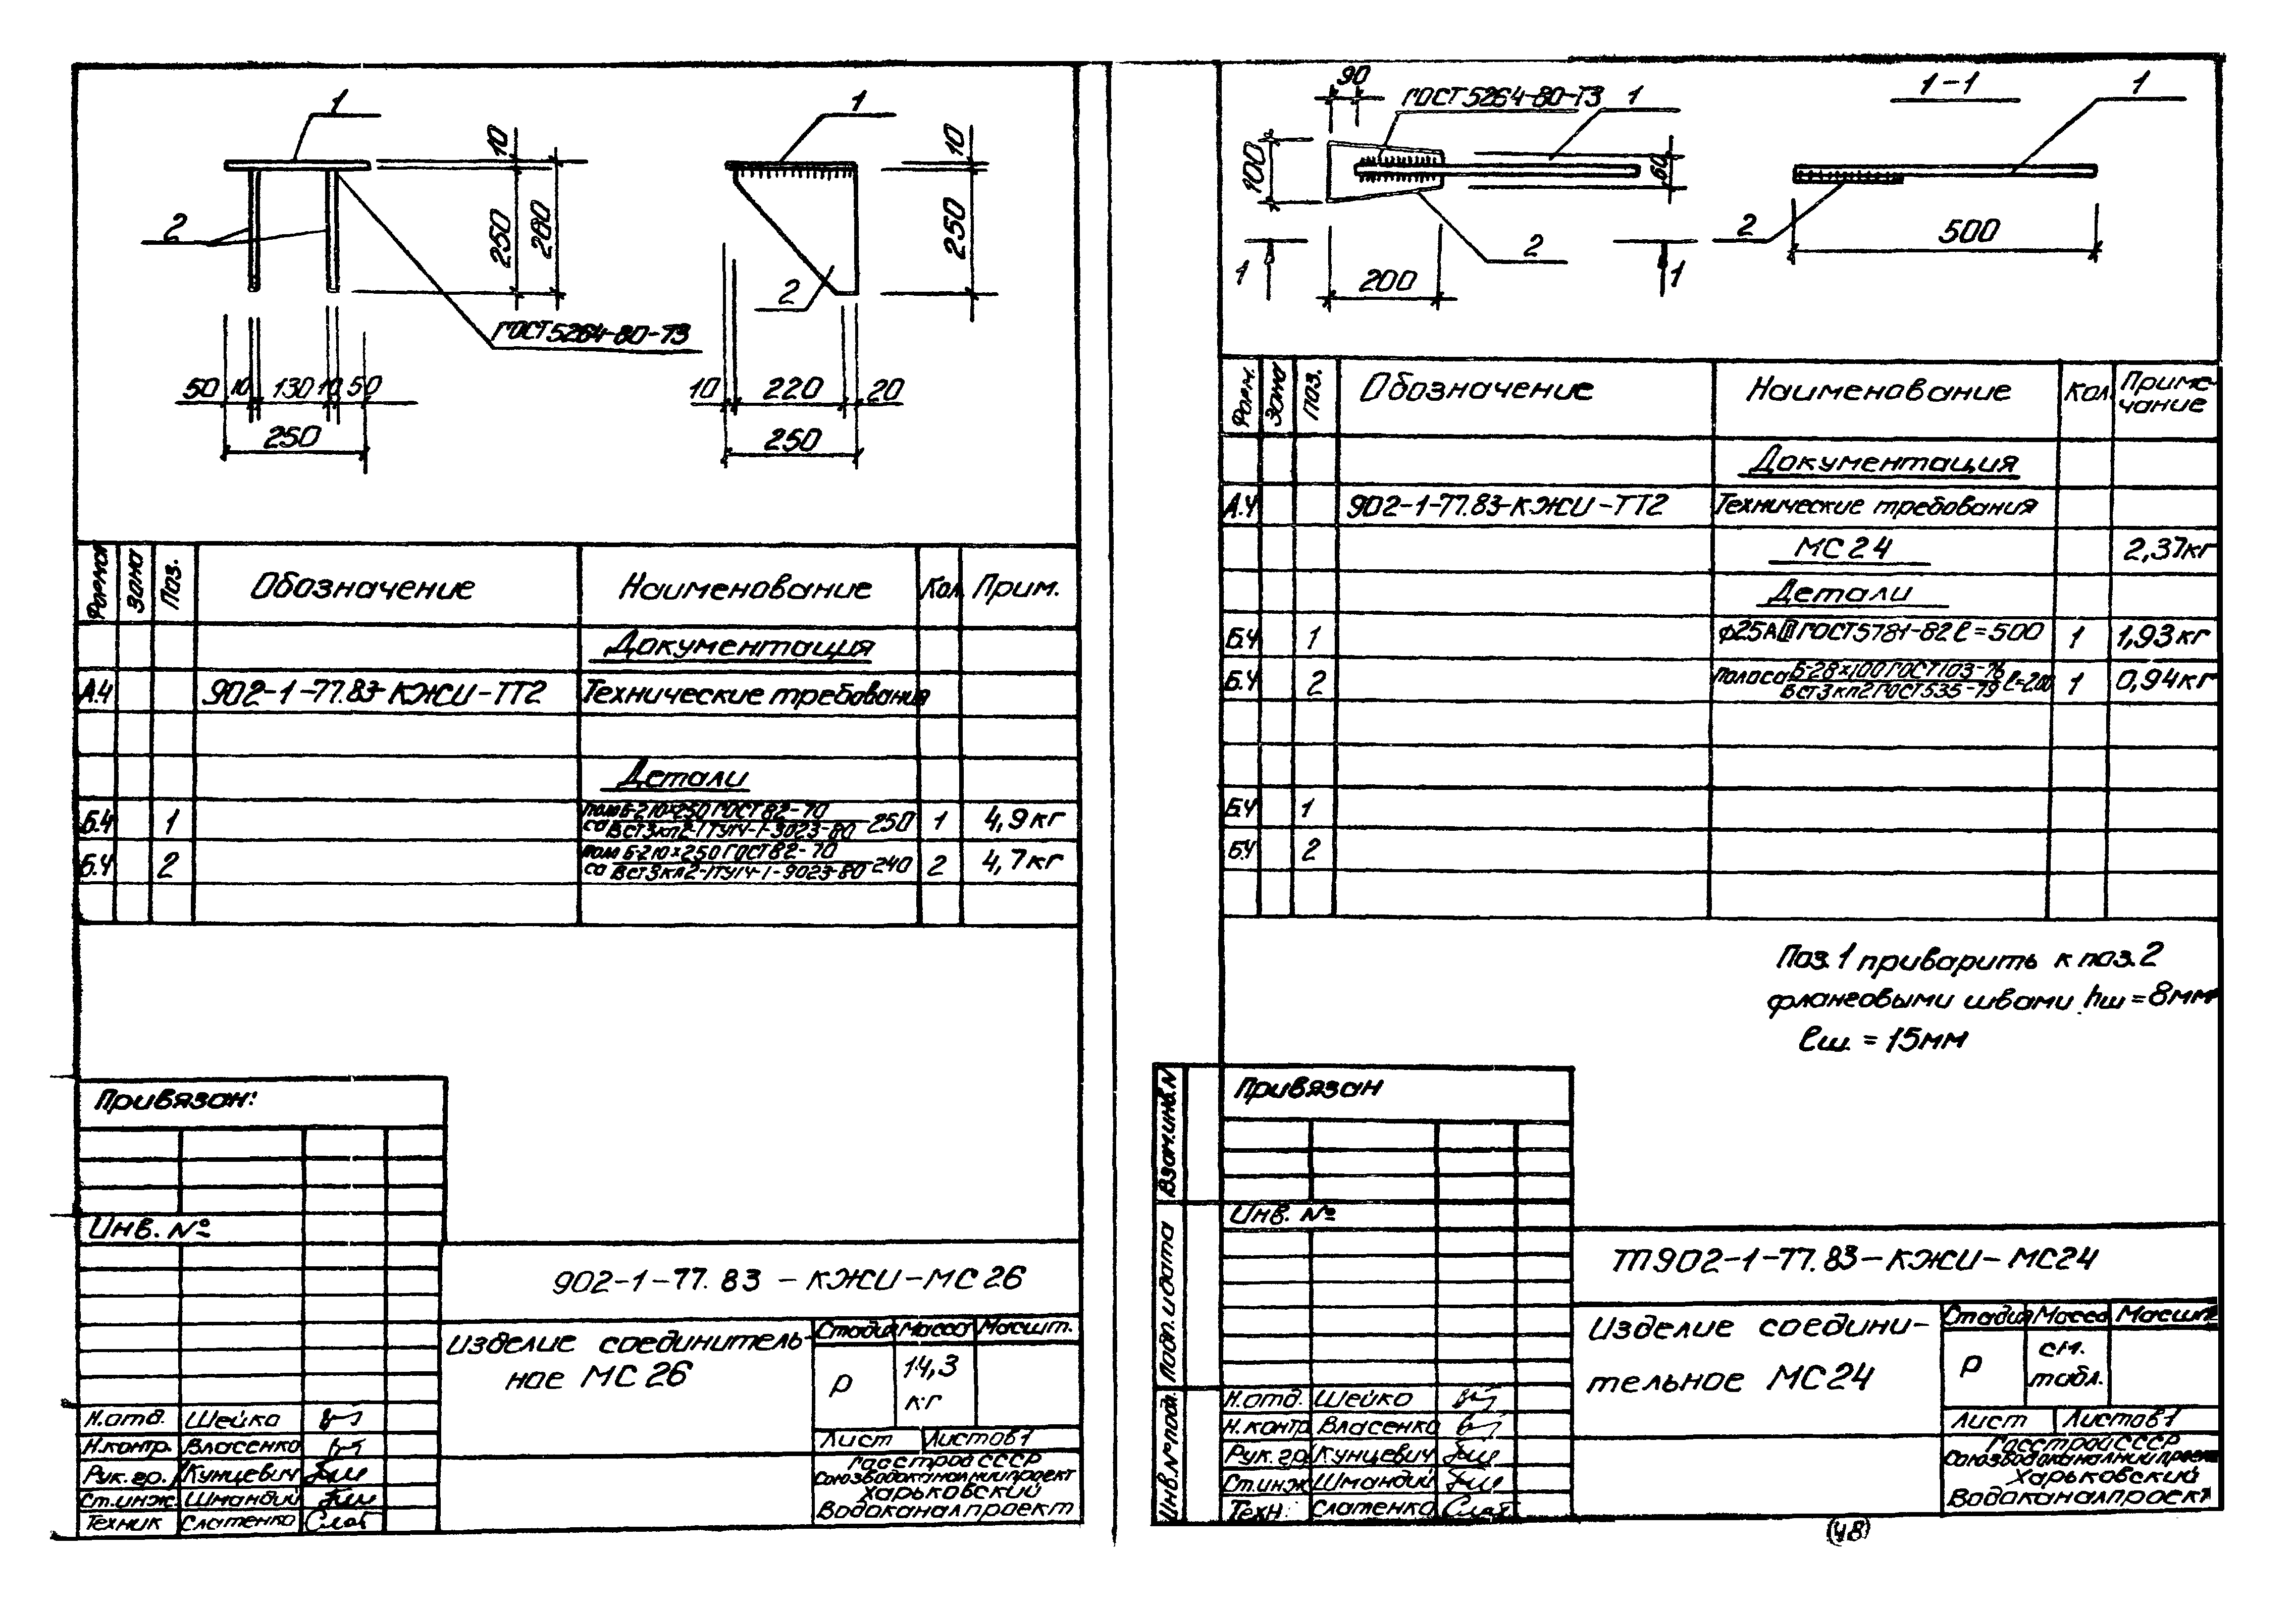 1
2
10
250
260
ГОСТ5264-80-Т3
50 10 130 10 50
250
1
10
250
2
10 220 20
250
Формат Зона Поз. Обозначение Наименование Кол. Прим.
Документация
А.4 902-1-77.83-КЖИ-ТТ2 Технические требования
Детали
Б.Ч 1 Поло Б-210×250 ГОСТ82-70 250 1 4,9кг
са ВСт3кп2-1ТУ14-1-3023-80
Б.Ч 2 Поло Б-210×250 ГОСТ82-70 240 2 4,7кг
са ВСт3кп2-1ТУ14-1-3023-80
Привязан:
Инв. №
902-1-77.83-КЖИ-МС26
Изделие соединитель-
ное МС26
Стадия Масса Масшт.
Р 14,3
кг
Лист Листов 1
Н.отд. Шейко
Н.контр. Власенко
Рук.гр. Кунцевич
Ст.инж. Шмандий
Техник Слатенко
Госстрой СССР
Союзводоканалниипроект
Харьковский
Водоканалпроект
90
ГОСТ5264-80-Т3 1
100
60
2
1 1
200
1-1
1
2
500
Форм. Зона Поз. Обозначение Наименование Кол. Приме-
чание
Документация
А.4 902-1-77.83-КЖИ-ТТ2 Технические требования
МС24 2,37кг
Детали
Б.Ч 1 ф25АIII ГОСТ5781-82 ℓ=500 1 1,93кг
Б.Ч 2 полоса Б-28×100 ГОСТ103-76 ℓ=200 1 0,94кг
ВСт3кп2 ГОСТ535-79
Б.Ч 1
Б.Ч 2
Поз.1 приварить к поз.2
фланговыми швами hш=8мм
ℓш.=15мм
Взам.инв.N
Подп. и дата
Инв.№подл.
Привязан
Инв. №
ТП902-1-77.83-КЖИ-МС24
Изделие соедини-
тельное МС24
Стадия Масса Масшт
Р см.
табл.
Лист Листов 1
Н.отд. Шейко
Н.контр Власенко
Рук.гр. Кунцевич
Ст.инж Шмандий
Техн. Слатенко
Госстрой СССР
Союзводоканалниипроект
Харьковский
Водоканалпроект
(48)